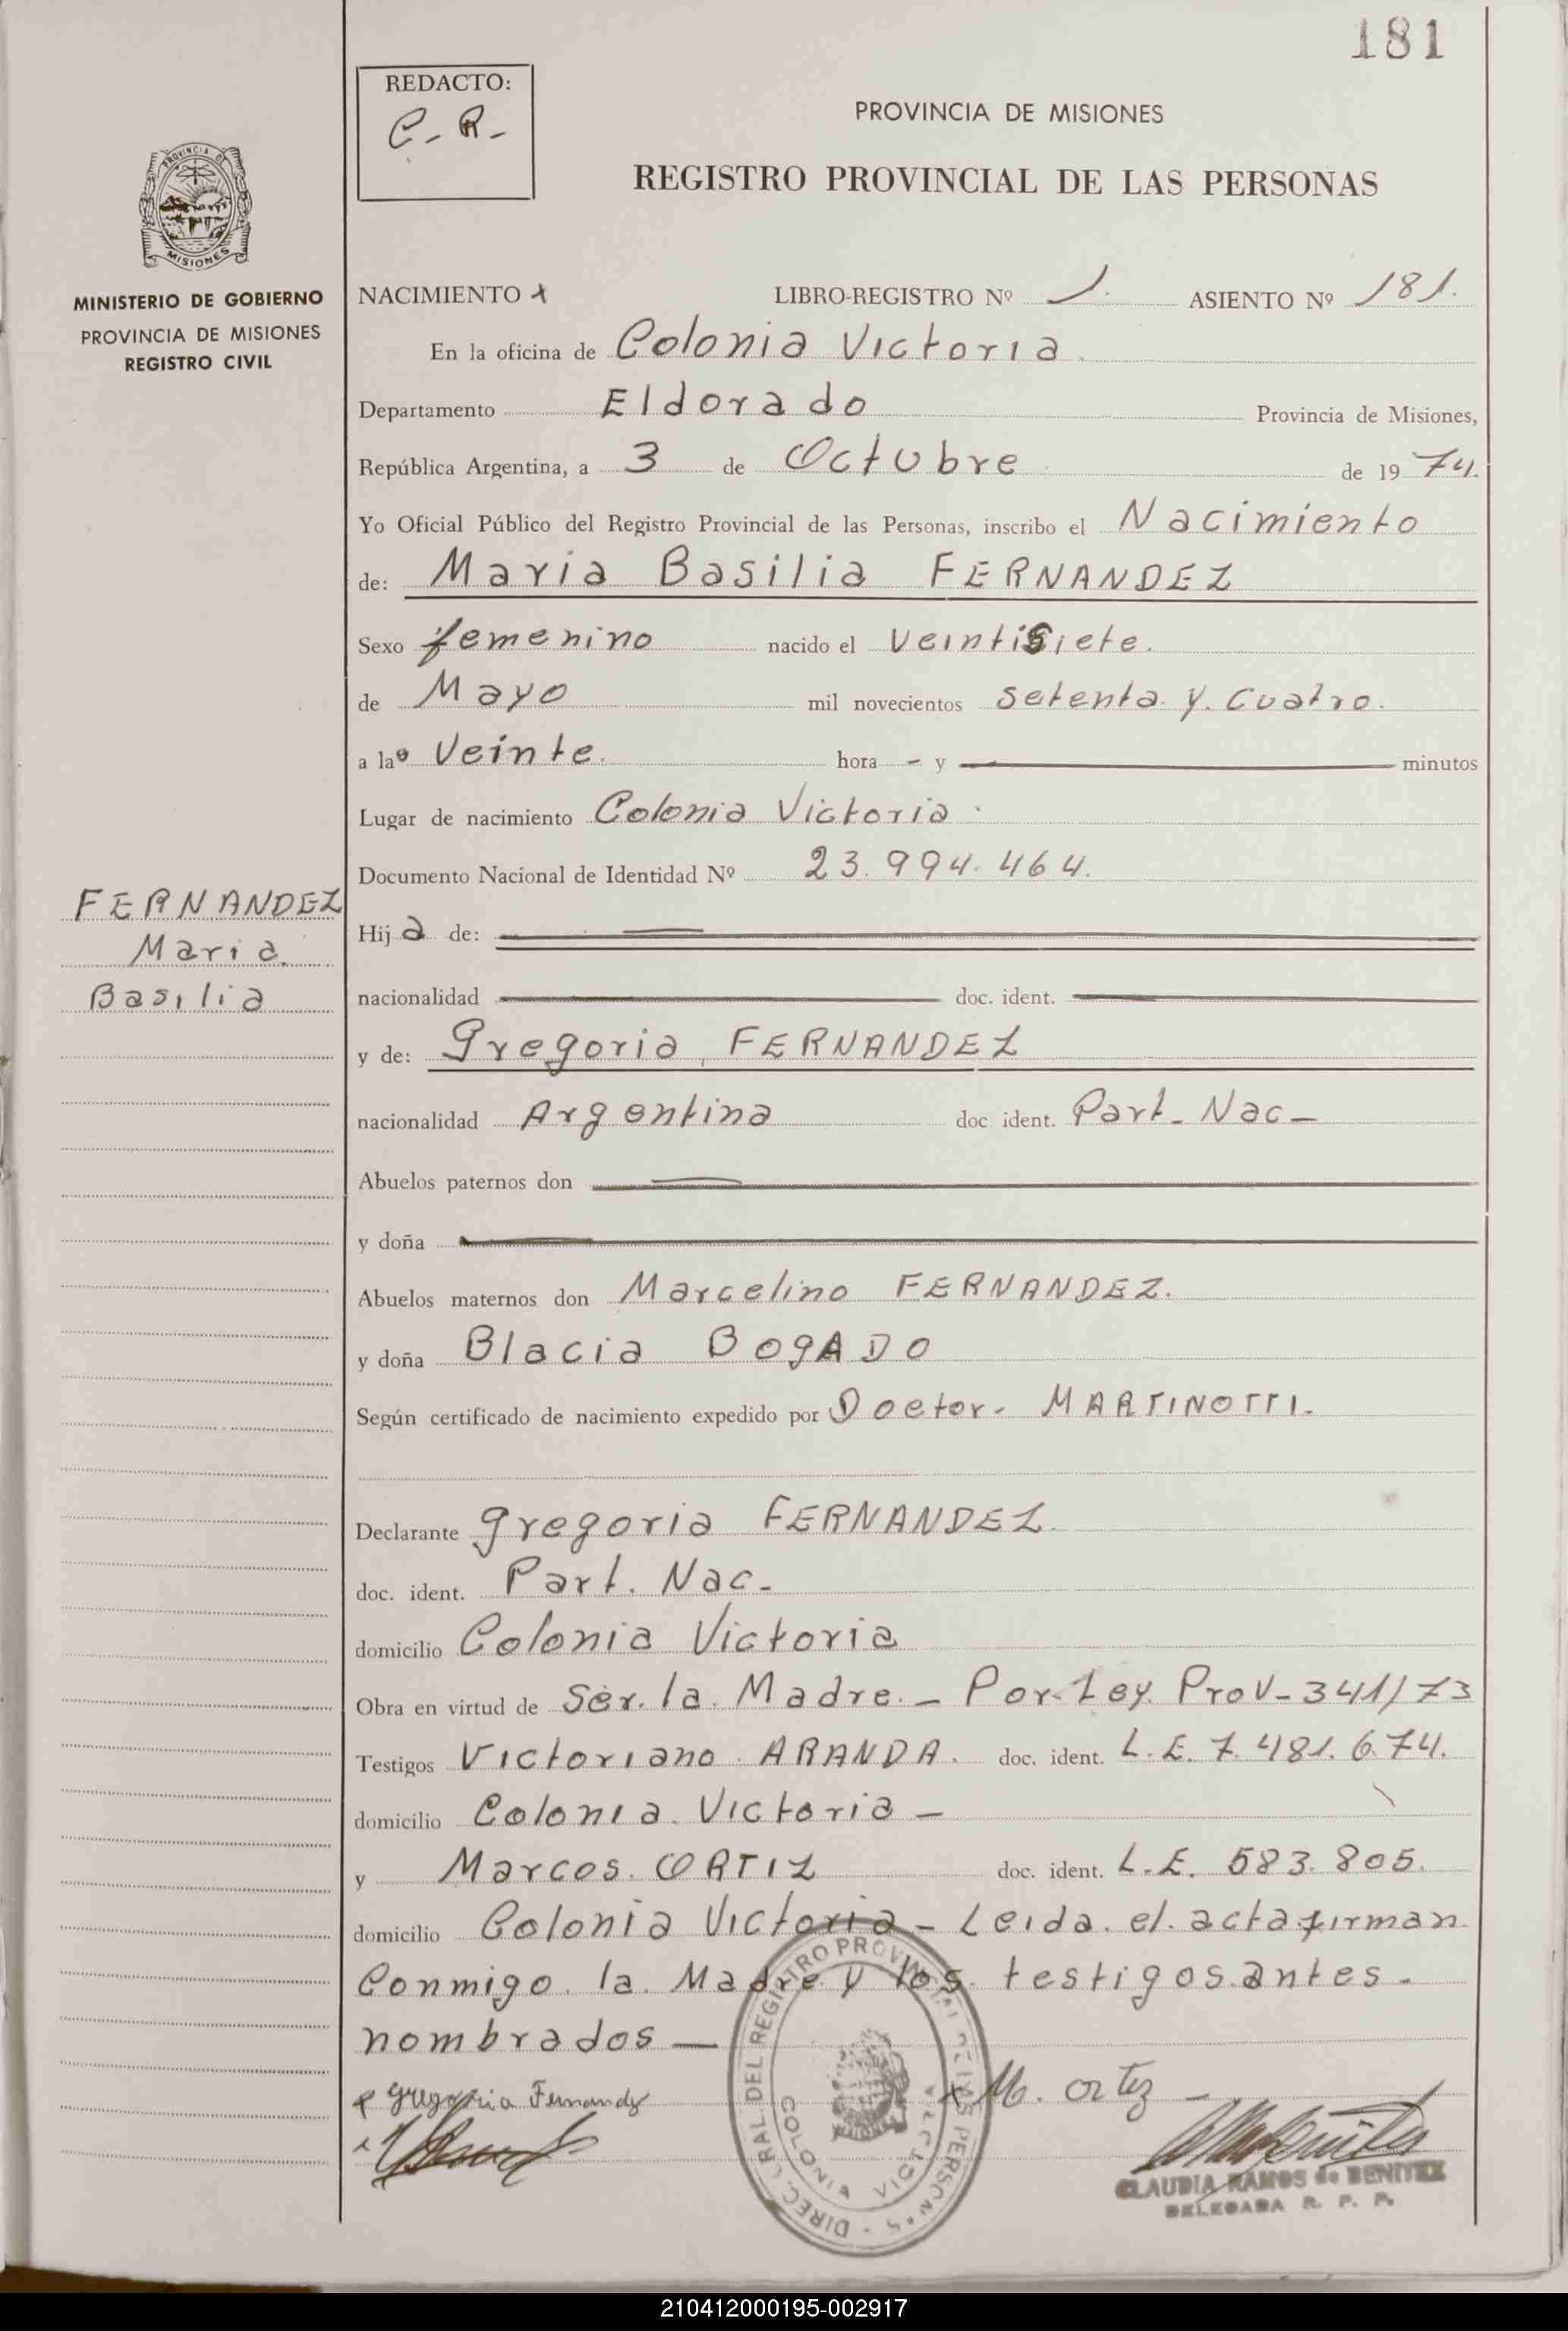 181
REDACTO:
C. R.
PROVINCIA DE MISIONES
REGISTRO PROVINCIAL DE LAS PERSONAS
PROVINCIA DE
MISIONES
MINISTERIO DE GOBIERNO
PROVINCIA DE MISIONES
REGISTRO CIVIL
NACIMIENTO LIBRO-REGISTRO Nº 1. ASIENTO Nº 181.
En la oficina de Colonia Victoria
Departamento Eldorado Provincia de Misiones,
República Argentina, a 3 de Octubre de 1974.
Yo Oficial Público del Registro Provincial de las Personas, inscribo el Nacimiento
de: Maria Basilia FERNANDEZ
Sexo femenino nacido el veintisiete.
de Mayo mil novecientos setenta y cuatro.
a las Veinte. hora - y minutos
Lugar de nacimiento Colonia Victoria
Documento Nacional de Identidad Nº 23.994.464.
FERNANDEZ
Maria
Basilia
Hija de:
nacionalidad doc. ident.
y de: Gregoria FERNANDEZ
nacionalidad Argentina doc ident. Part. Nac-
Abuelos paternos don
y doña
Abuelos maternos don Marcelino FERNANDEZ.
y doña Blacia BOgADO
Según certificado de nacimiento expedido por Doctor. MARTINOTTI.
Declarante gregoria FERNANDEZ.
doc. ident. Part. Nac-
domicilio Colonia Victoria
Obra en virtud de Ser la Madre.- Por Ley Prov-341/73
Testigos Victoriano ARANDA. doc. ident. L.E. 7.481.674.
domicilio Colonia Victoria -
y Marcos ORTIZ doc. ident. L.E. 583.805.
domicilio Colonia Victoria - Leida el acta firman
Conmigo la Madre y los testigos antes
nombrados —
Gregoria Fernandez
M. Ortiz
DIREC. GRAL DEL REGISTRO PROVINCIAL DE LAS PERSONAS
COLONIA VICTORIA
CLAUDIA RAMOS de BENITEZ
DELEGADA R. P. P.
210412000195-002917